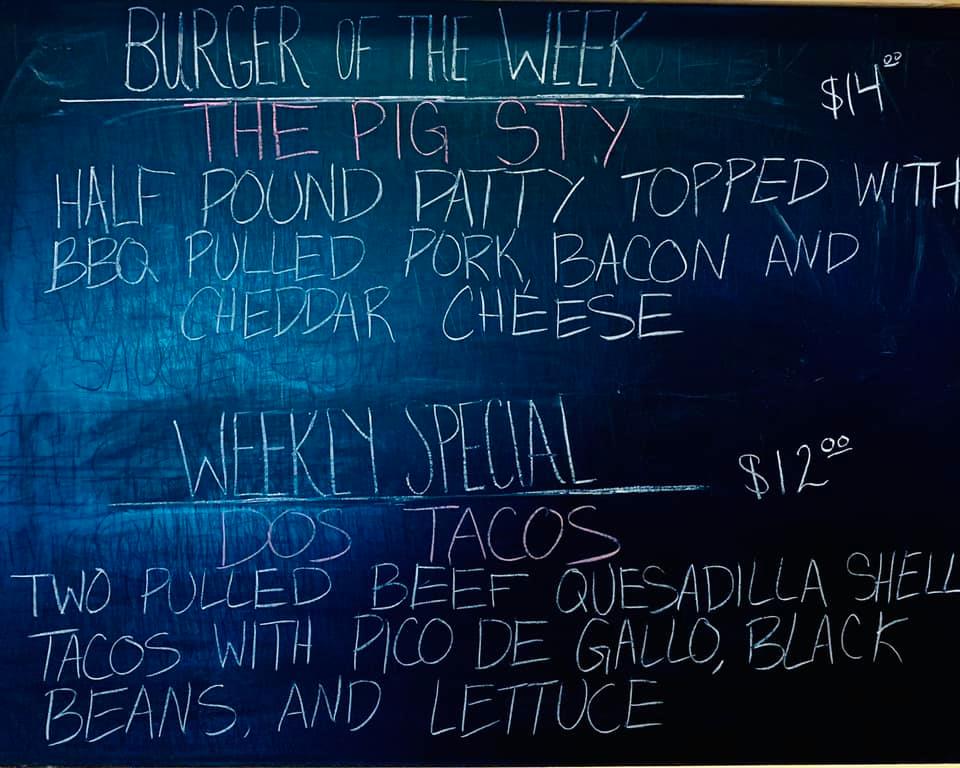 BURGER OF THE WEEK
$14.00
THE PIG STY
HALF POUND PATTY TOPPED WITH
BBQ PULLED PORK, BACON AND
CHEDDAR CHEESE
WEEKLY SPECIAL
$12.00
DOS TACOS
TWO PULLED BEEF QUESADILLA SHELL
TACOS WITH PICO DE GALLO, BLACK
BEANS, AND LETTUCE